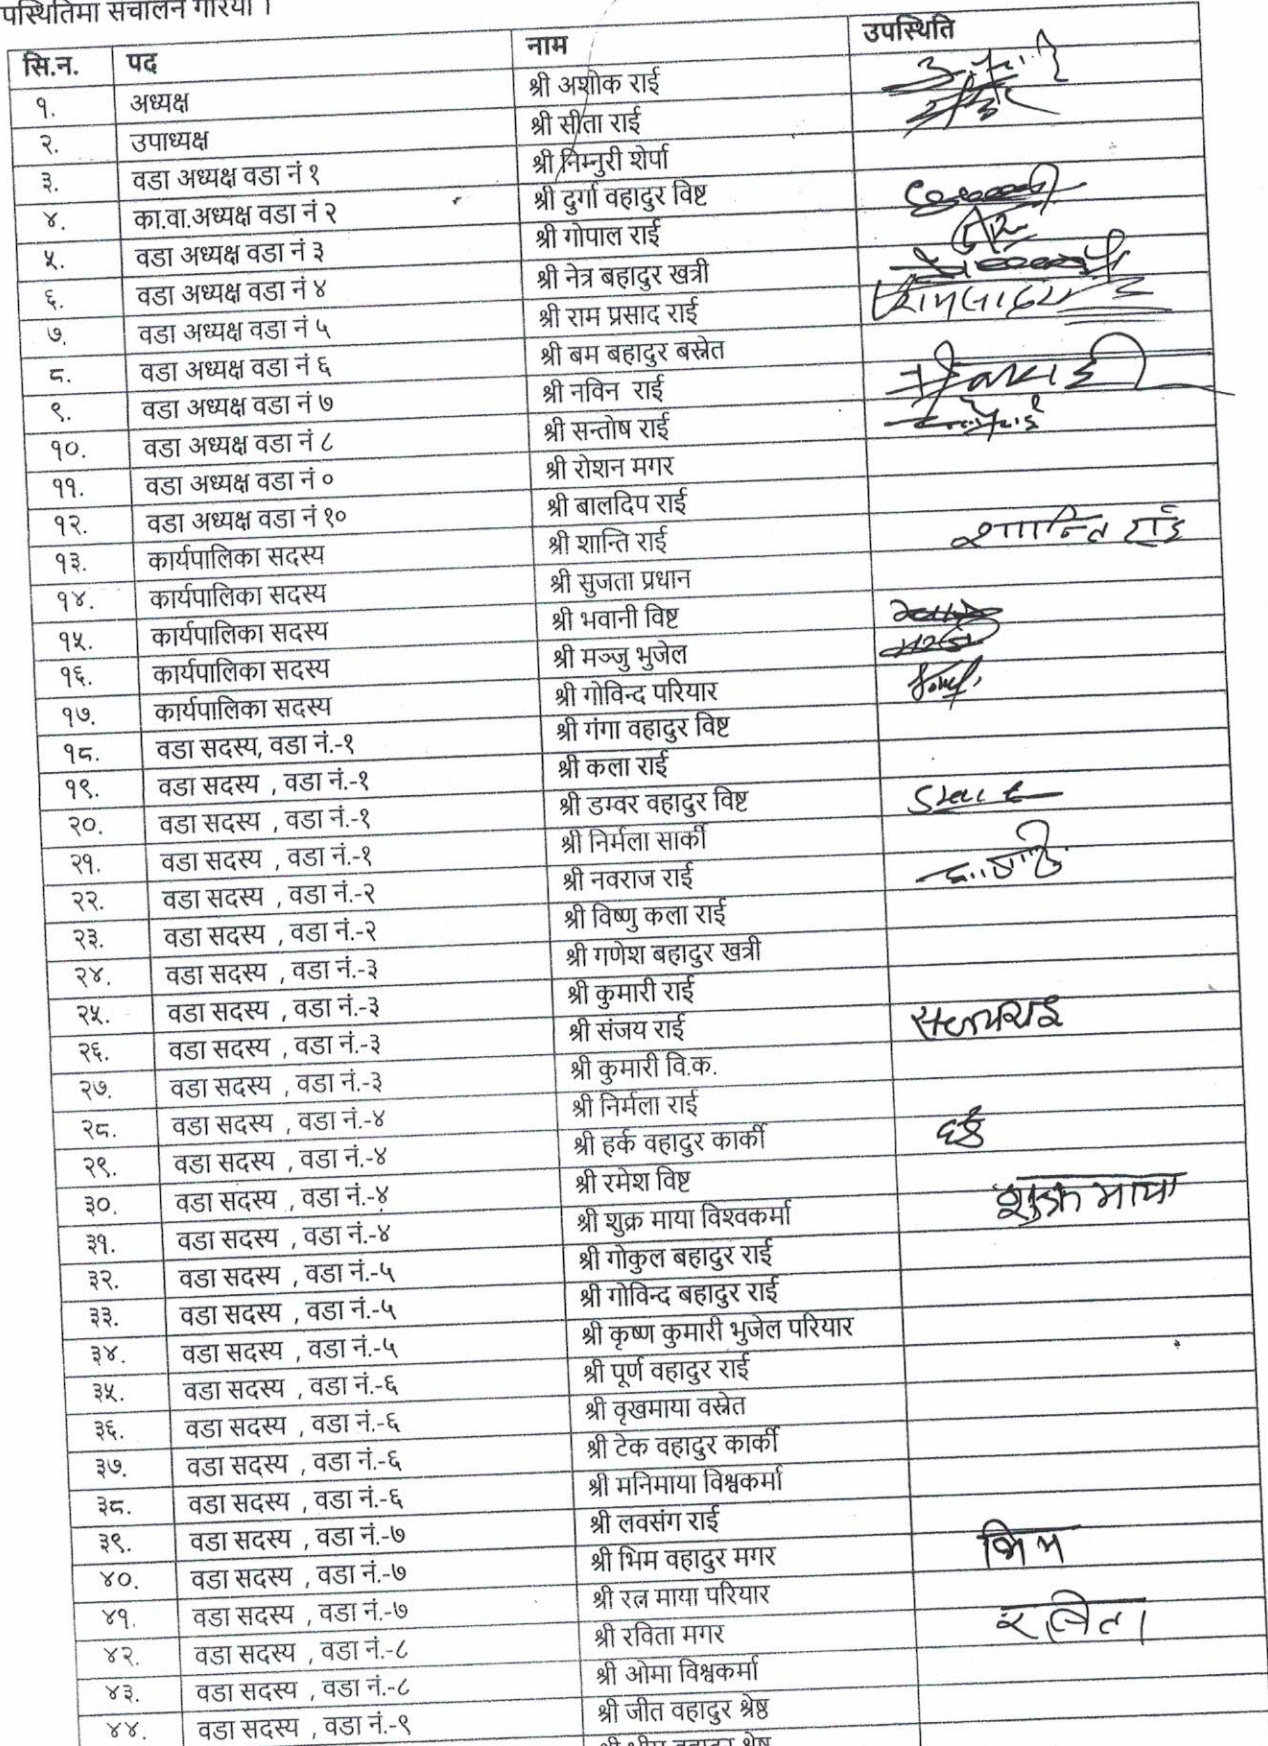 पस्थितिमा संचालन गरियो ।
सि.न. पद नाम उपस्थिति
१. अध्यक्ष श्री अशोक राई
२. उपाध्यक्ष श्री सीता राई
३. वडा अध्यक्ष वडा नं १ श्री निम्नुरी शेर्पा
४. का.वा.अध्यक्ष वडा नं २ श्री दुर्गा वहादुर विष्ट
५. वडा अध्यक्ष वडा नं ३ श्री गोपाल राई
६. वडा अध्यक्ष वडा नं ४ श्री नेत्र बहादुर खत्री
७. वडा अध्यक्ष वडा नं ५ श्री राम प्रसाद राई
८. वडा अध्यक्ष वडा नं ६ श्री बम बहादुर बस्नेत
९. वडा अध्यक्ष वडा नं ७ श्री नविन राई
१०. वडा अध्यक्ष वडा नं ८ श्री सन्तोष राई
११. वडा अध्यक्ष वडा नं ० श्री रोशन मगर
१२. वडा अध्यक्ष वडा नं १० श्री बालदिप राई
१३. कार्यपालिका सदस्य श्री शान्ति राई शान्ति राई
१४. कार्यपालिका सदस्य श्री सुजता प्रधान
१५. कार्यपालिका सदस्य श्री भवानी विष्ट
१६. कार्यपालिका सदस्य श्री मञ्जु भुजेल
१७. कार्यपालिका सदस्य श्री गोविन्द परियार
१८. वडा सदस्य, वडा नं.-१ श्री गंगा वहादुर विष्ट
१९. वडा सदस्य , वडा नं.-१ श्री कला राई
२०. वडा सदस्य , वडा नं.-१ श्री डम्वर वहादुर विष्ट
२१. वडा सदस्य , वडा नं.-१ श्री निर्मला सार्की
२२. वडा सदस्य , वडा नं.-२ श्री नवराज राई
२३. वडा सदस्य , वडा नं.-२ श्री विष्णु कला राई
२४. वडा सदस्य , वडा नं.-३ श्री गणेश बहादुर खत्री
२५. वडा सदस्य , वडा नं.-३ श्री कुमारी राई
२६. वडा सदस्य , वडा नं.-३ श्री संजय राई
२७. वडा सदस्य , वडा नं.-३ श्री कुमारी वि.क.
२८. वडा सदस्य , वडा नं.-४ श्री निर्मला राई
२९. वडा सदस्य , वडा नं.-४ श्री हर्क वहादुर कार्की
३०. वडा सदस्य , वडा नं.-४ श्री रमेश विष्ट
३१. वडा सदस्य , वडा नं.-४ श्री शुक्र माया विश्वकर्मा शुक्र माया
३२. वडा सदस्य , वडा नं.-५ श्री गोकुल बहादुर राई
३३. वडा सदस्य , वडा नं.-५ श्री गोविन्द बहादुर राई
३४. वडा सदस्य , वडा नं.-५ श्री कृष्ण कुमारी भुजेल परियार
३५. वडा सदस्य , वडा नं.-६ श्री पूर्ण वहादुर राई
३६. वडा सदस्य , वडा नं.-६ श्री वृखमाया वस्नेत
३७. वडा सदस्य , वडा नं.-६ श्री टेक वहादुर कार्की
३८. वडा सदस्य , वडा नं.-६ श्री मनिमाया विश्वकर्मा
३९. वडा सदस्य , वडा नं.-७ श्री लवसंग राई
४०. वडा सदस्य , वडा नं.-७ श्री भिम वहादुर मगर भिम
४१. वडा सदस्य , वडा नं.-७ श्री रत्न माया परियार
४२. वडा सदस्य , वडा नं.-८ श्री रविता मगर रविता
४३. वडा सदस्य , वडा नं.-८ श्री ओमा विश्वकर्मा
४४. वडा सदस्य , वडा नं.-९ श्री जीत वहादुर श्रेष्ठ